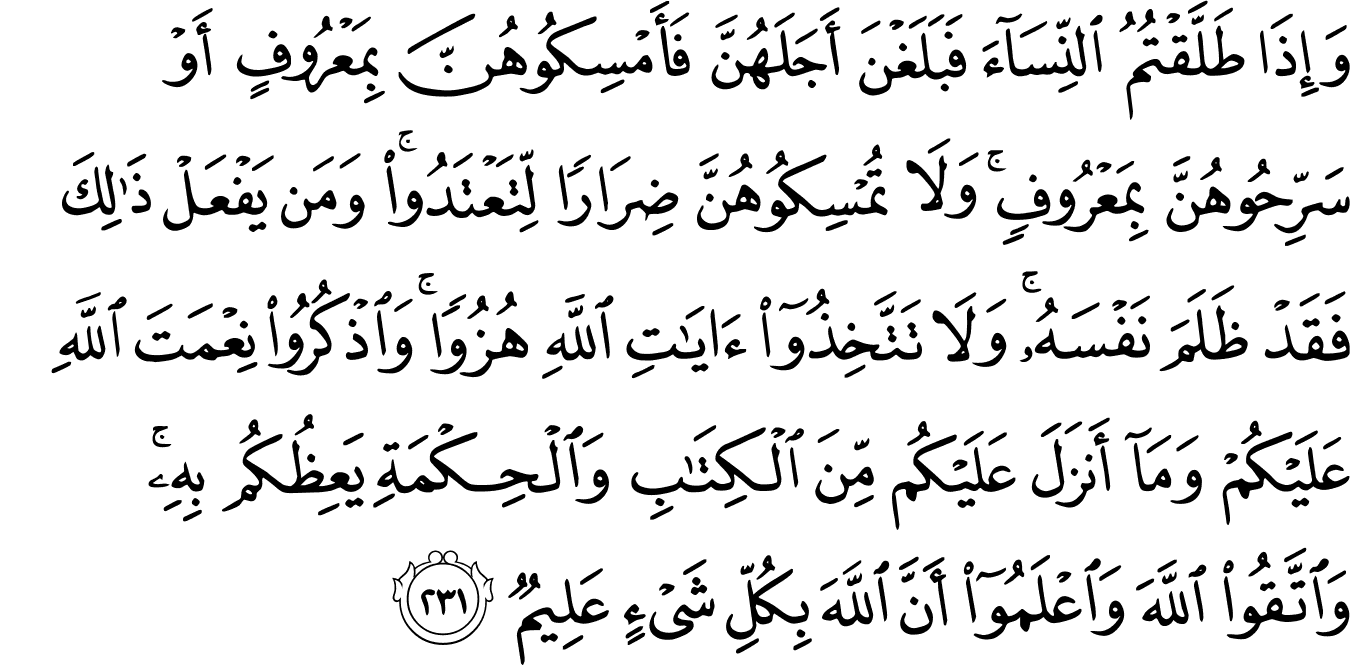 وَإِذَا طَلَّقْتُمُ ٱلنِّسَآءَ فَبَلَغْنَ أَجَلَهُنَّ فَأَمْسِكُوهُنَّ بِمَعْرُوفٍ أَوْ
سَرِّحُوهُنَّ بِمَعْرُوفٍۚ وَلَا تُمْسِكُوهُنَّ ضِرَارًا لِّتَعْتَدُوا۟ۚ وَمَن يَفْعَلْ ذَٰلِكَ
فَقَدْ ظَلَمَ نَفْسَهُۥۚ وَلَا تَتَّخِذُوٓا۟ ءَايَٰتِ ٱللَّهِ هُزُوًاۚ وَٱذْكُرُوا۟ نِعْمَتَ ٱللَّهِ
عَلَيْكُمْ وَمَآ أَنزَلَ عَلَيْكُم مِّنَ ٱلْكِتَٰبِ وَٱلْحِكْمَةِ يَعِظُكُم بِهِۦۚ
وَٱتَّقُوا۟ ٱللَّهَ وَٱعْلَمُوٓا۟ أَنَّ ٱللَّهَ بِكُلِّ شَىْءٍ عَلِيمٌ ٢٣١